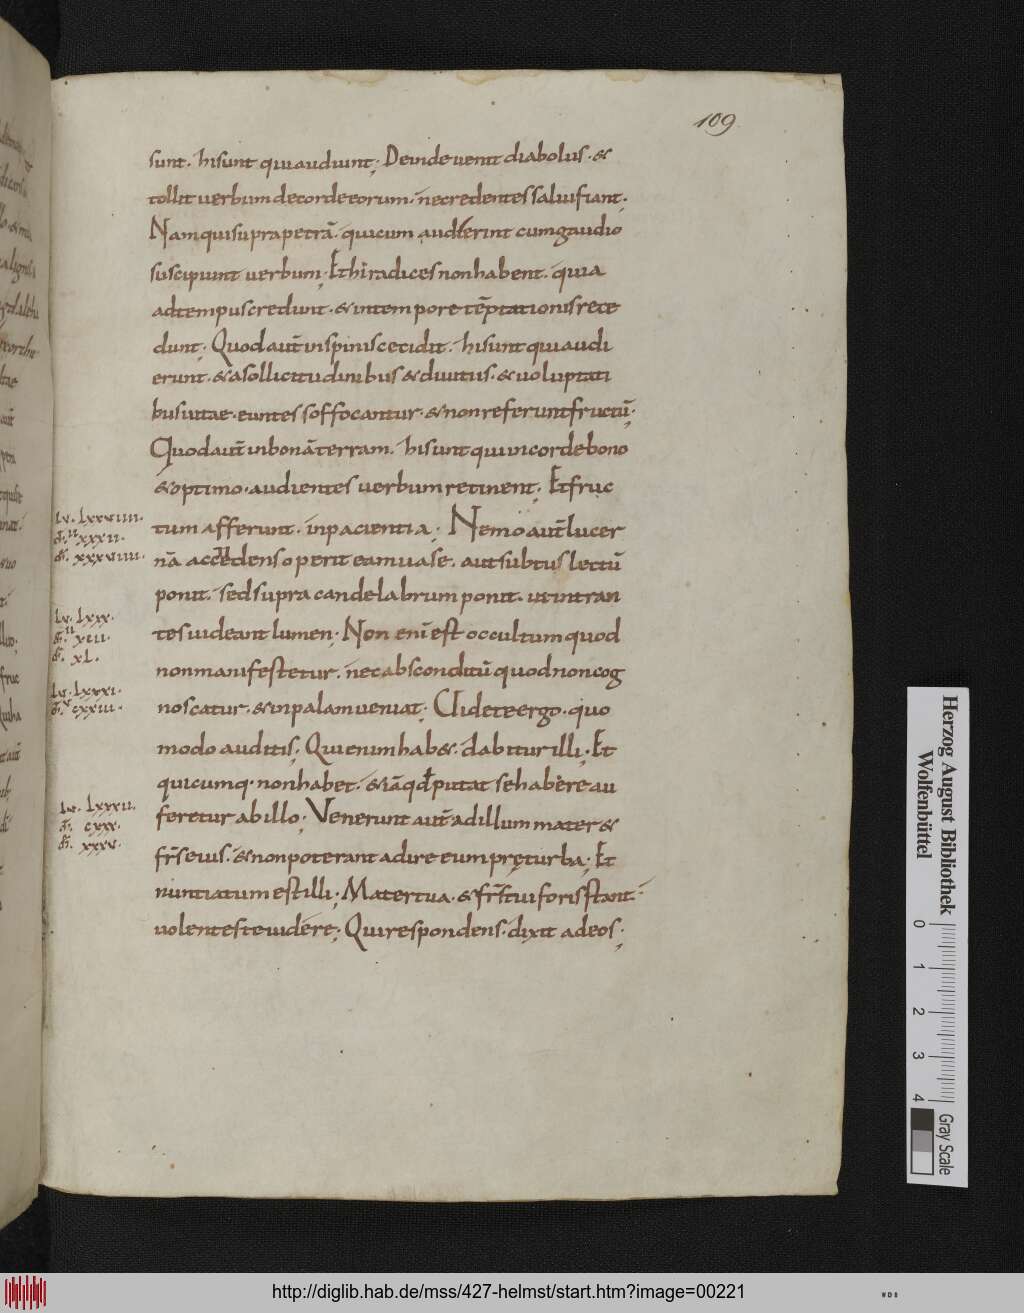 109
sunt. hi sunt qui audiunt; Deinde uenit diabolus. &
tollit uerbum de corde eorum. ne credentes salui fiant.
Nam qui supra petrā. qui cum audierint cum gaudio
suscipiunt uerbum; Et hi radices non habent. quia
ad tempus credunt. & in tempore tēptationis rece
dunt; Quod aut̄ in spinis cecidit. hi sunt qui audi
erunt. & a sollicitudinibus & diuitiis. & uoluptati
bus uitae. euntes soffocantur. & non referunt fructū;
Quod aut̄ in bonā terram. hi sunt qui in corde bono
& optimo. audientes uerbum retinent. Et fruc
tum afferunt. in pacientia; Nemo aut̄ lucer
nā accendens operit eam uase. aut subtus lectū
ponit. sed supra candelabrum ponit. ut intran
tes uideant lumen; Non enī est occultum quod
non manifestetur. nec absconditū quod non cog
noscatur. & in palam ueniat; Uidete ergo. quo
modo auditis; Qui enim hab&. dabitur illi; Et
quicumq; non habet. & iā qđ putat se habere au
feretur ab illo; Venerunt aut̄ ad illum mater &
fr̄s eius. & non poterant adire eum prę turba; Et
nuntiatum est illi; Mater tua. & fr̄s tui foris stant.
uolentes te uidere; Qui respondens. dixit ad eos;
lu. lxxuiiii.
lu. lxxx.
lu. lxxxi.
lu. lxxxii.
Herzog August Bibliothek
Wolfenbüttel
0 1 2 3 4
Gray Scale
http://diglib.hab.de/mss/427-helmst/start.htm?image=00221